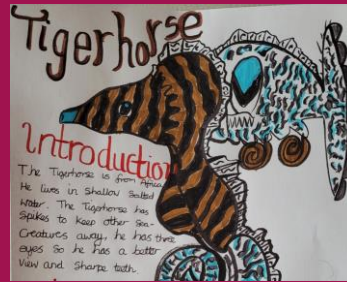 Tigerhorse
Introduction
The Tigerhorse is from Africa.
He lives in shallow salted
water. The Tigerhorse has
spikes to keep other sea-
creatures away, he has three
eyes so he has a better
view and sharpe teeth.